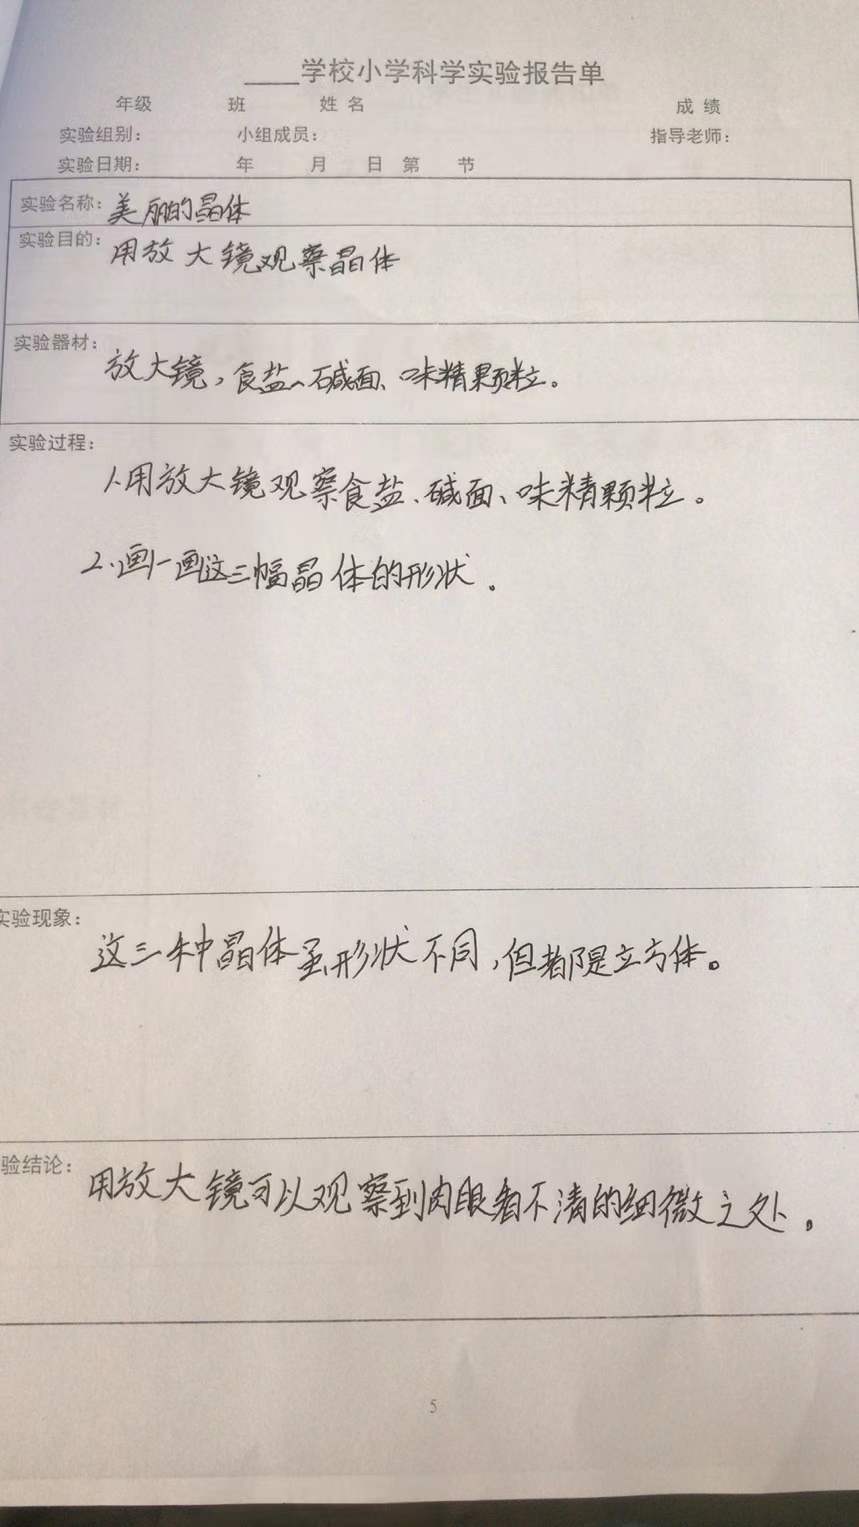 ____学校小学科学实验报告单
年级 班 姓名 成绩
实验组别： 小组成员： 指导老师：
实验日期： 年 月 日 第 节
实验名称：美丽的晶体
实验目的：用放大镜观察晶体
实验器材：放大镜，食盐、碱面、味精颗粒。
实验过程：
1.用放大镜观察食盐、碱面、味精颗粒。
2.画一画这三幅晶体的形状。
实验现象：
这三种晶体虽形状不同，但都是立方体。
验结论：
用放大镜可以观察到肉眼看不清的细微之处。
5